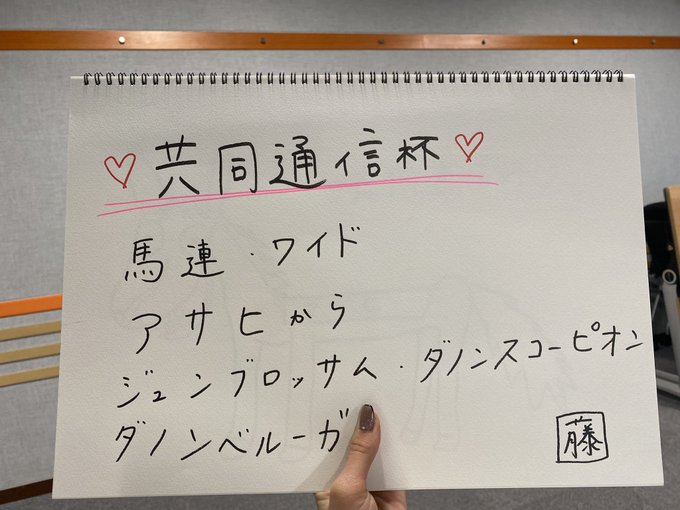 ♡共同通信杯♡
馬連・ワイド
アサヒから
ジュンブロッサム・ダノンスコーピオン
ダノンベルーガ
藤